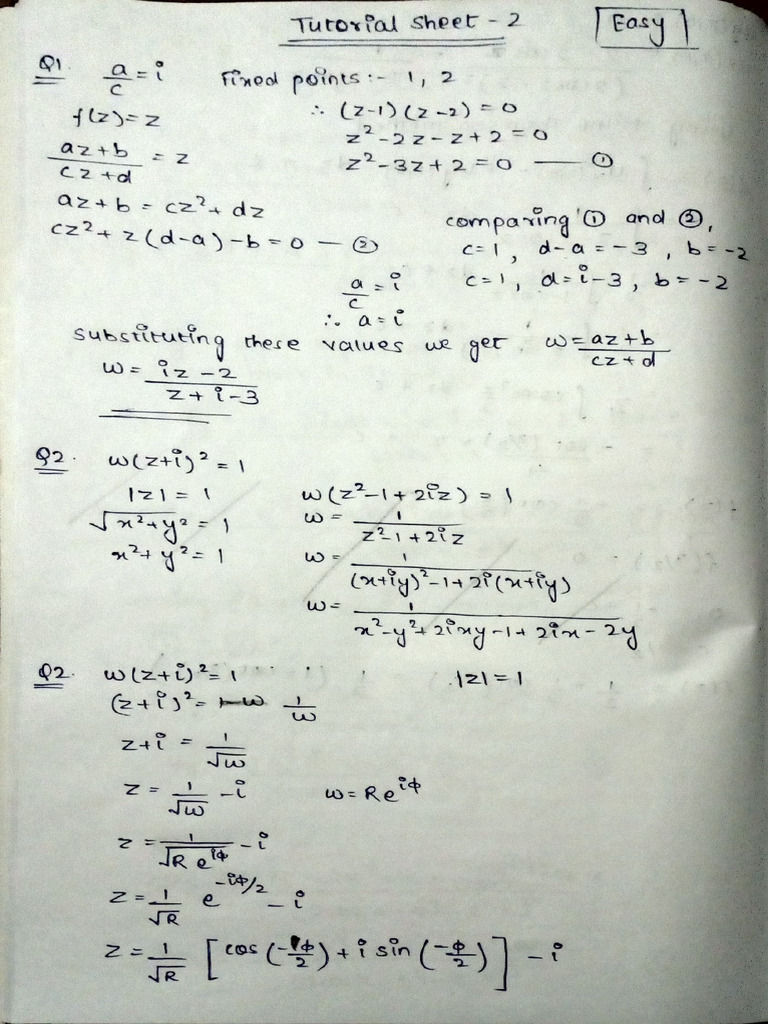 Tutorial Sheet - 2
Easy
Q1. a/c = i Fixed points:- 1, 2
f(z) = z
(az+b)/(cz+d) = z
az+b = cz²+dz
cz²+z(d-a)-b=0 — ②
∴ (z-1)(z-2) = 0
z²-2z-z+2=0
z²-3z+2=0 — ①
comparing ① and ②,
c=1, d-a=-3, b=-2
a/c = i
∴ a=i
c=1, d=i-3, b=-2
substituting these values we get w = (az+b)/(cz+d)
w = (iz-2)/(z+i-3)
Q2. w(z+i)² = 1
|z| = 1
√(x²+y²) = 1
x²+y² = 1
w(z²-1+2iz) = 1
w = 1/(z²-1+2iz)
w = 1/((x+iy)²-1+2i(x+iy))
w = 1/(x²-y²+2ixy-1+2ix-2y)
Q2. w(z+i)² = 1 |z| = 1
(z+i)² = 1/w
z+i = 1/√w
z = 1/√w - i w = Re^(iφ)
z = 1/√(R e^(iφ)) - i
z = 1/√R e^(-iφ/2) - i
z = 1/√R [cos(-φ/2) + i sin(-φ/2)] - i